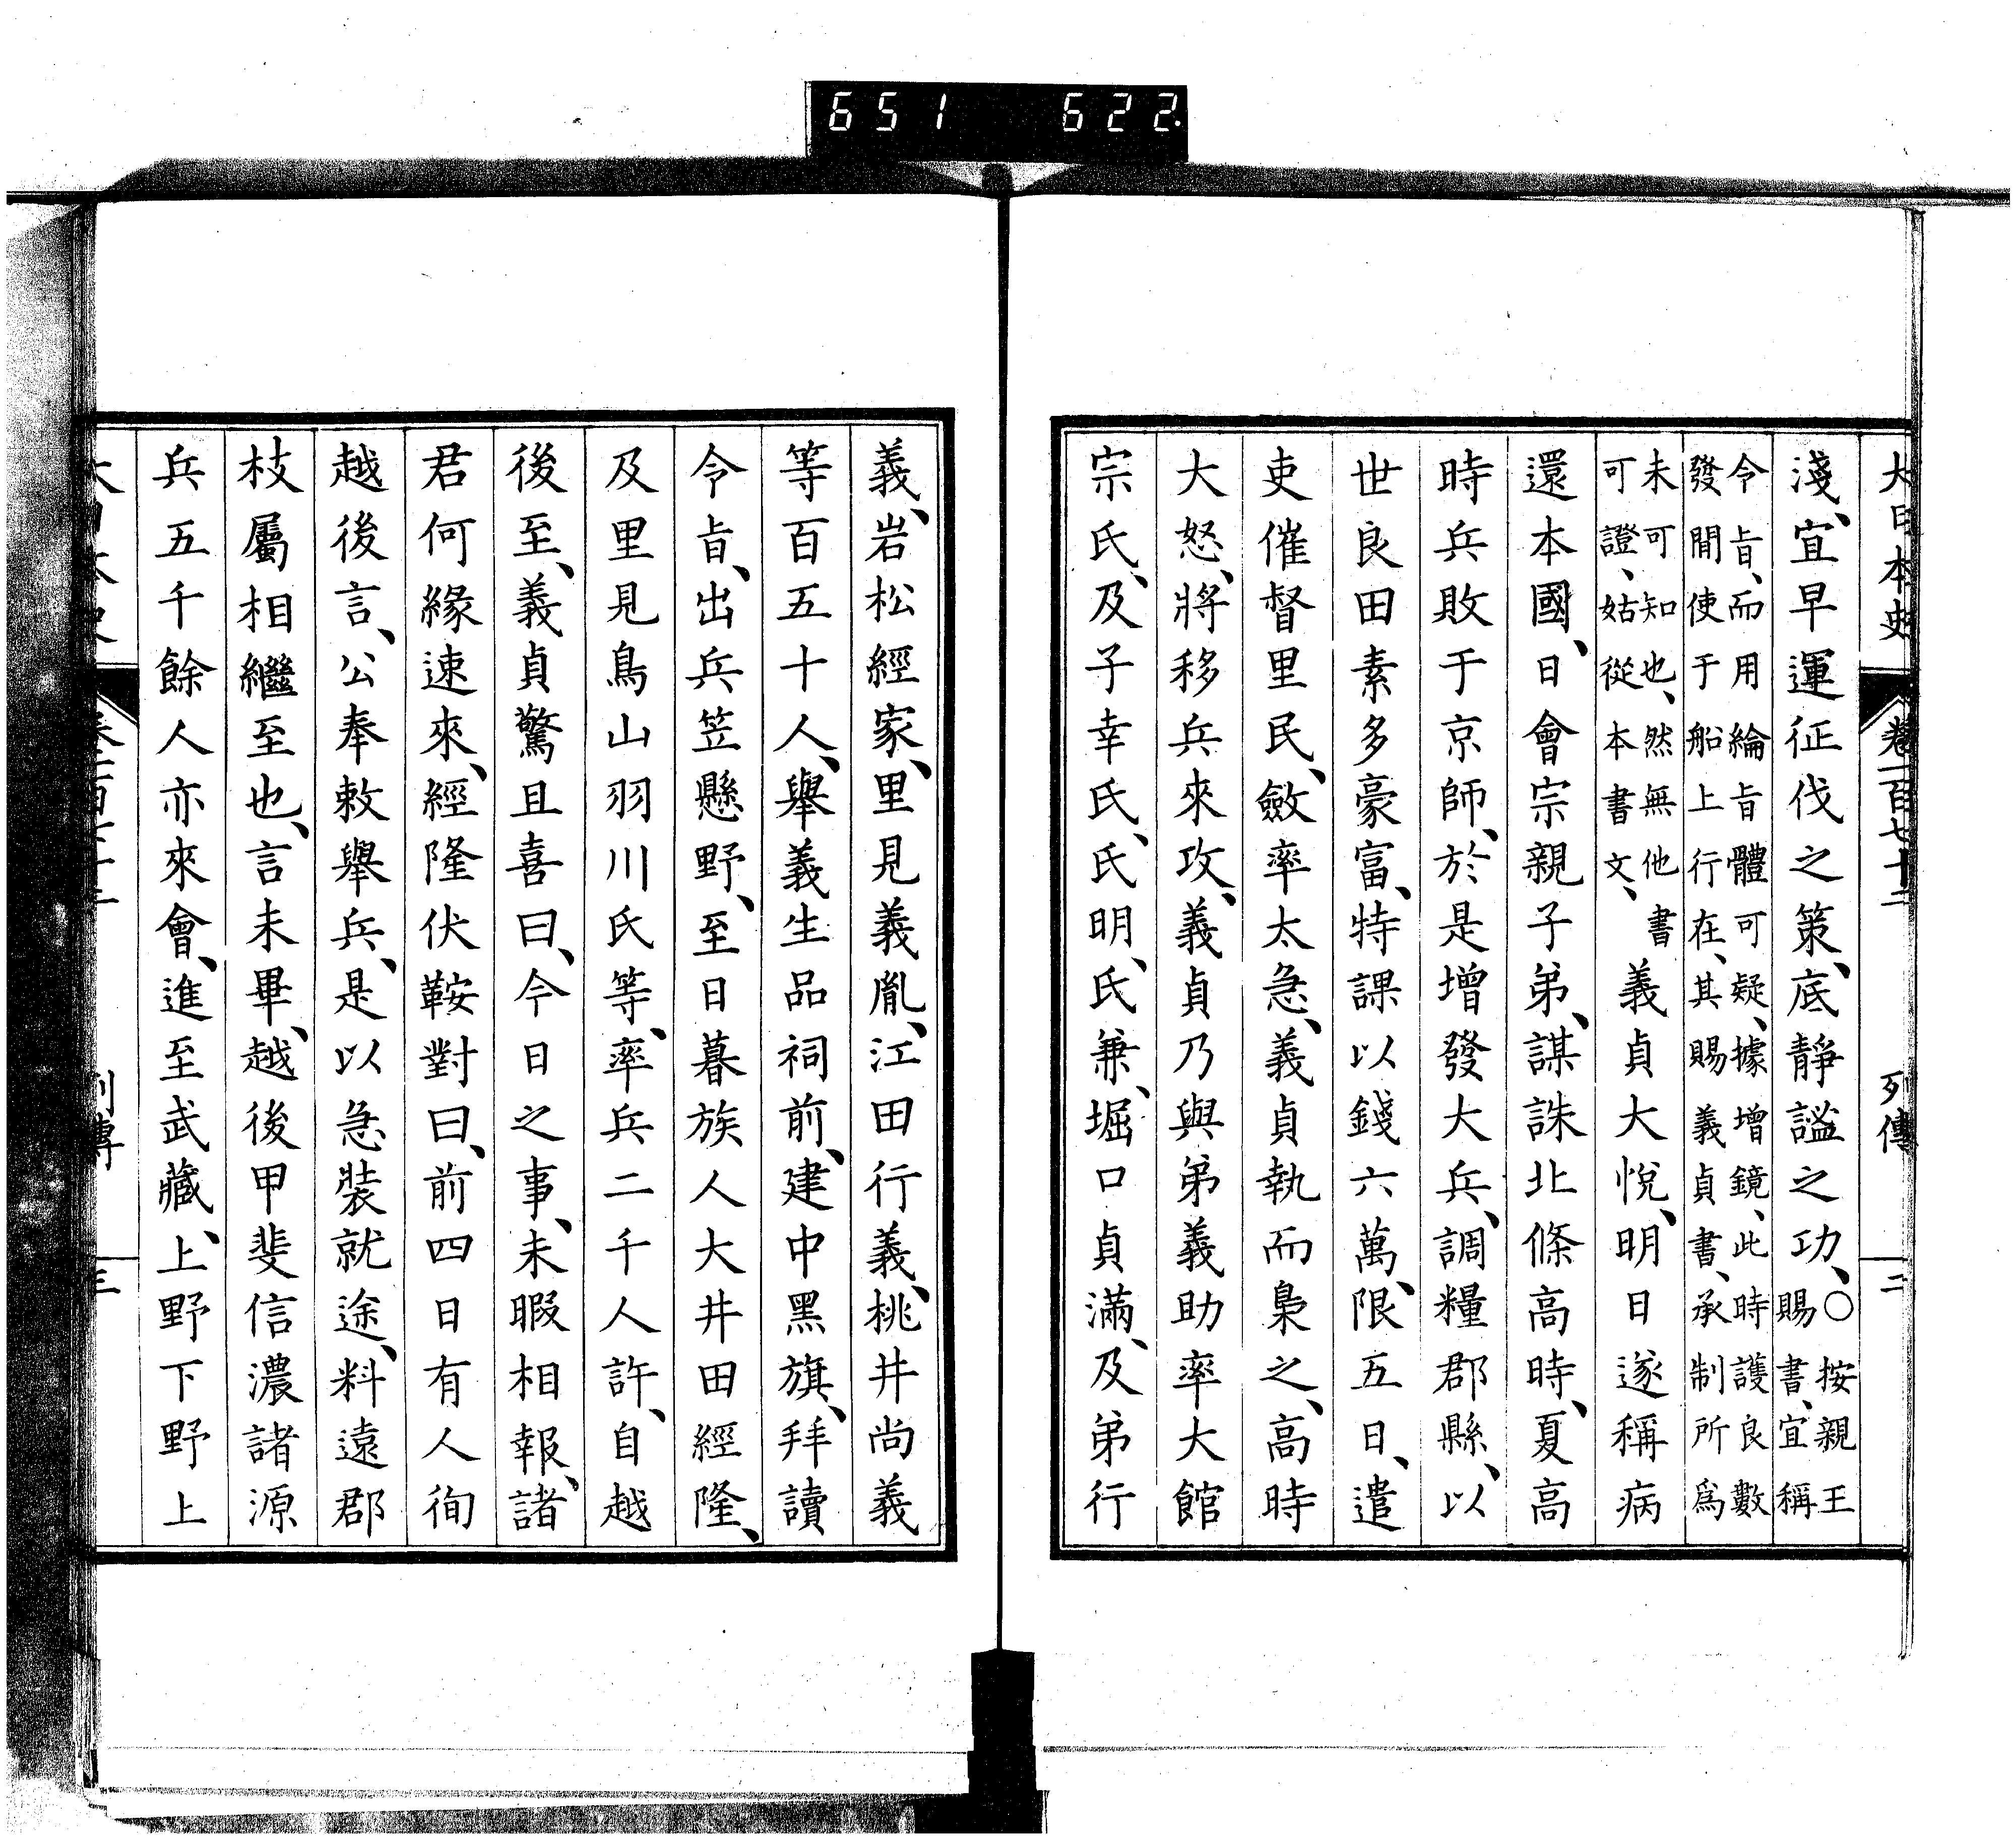 651 622
大日本史 卷一百七十二 列傳 二
淺、宜早運征伐之策、底靜謐之功、○按親王賜書、宜稱
令旨、而用綸旨體可疑、據增鏡、此時護良數
發間使于船上行在、其賜義貞書、承制所爲
未可知也、然無他書
可證、姑從本書文、義貞大悅、明日遂稱病
還本國、日會宗親子弟、謀誅北條高時、夏高
時兵敗于京師、於是增發大兵、調糧郡縣、以
世良田素多豪富、特課以錢六萬、限五日、遣
吏催督里民、斂率太急、義貞執而梟之、高時
大怒、將移兵來攻、義貞乃與弟義助率大館
宗氏、及子幸氏、氏明、氏兼、堀口貞滿、及弟行
義、岩松經家、里見義胤、江田行義、桃井尚義
等百五十人、舉義生品祠前、建中黑旗、拜讀
令旨、出兵笠懸野、至日暮族人大井田經隆、
及里見鳥山羽川氏等、率兵二千人許、自越
後至、義貞驚且喜曰、今日之事、未暇相報、諸
君何緣速來、經隆伏鞍對曰、前四日有人徇
越後言、公奉敕舉兵、是以急裝就途、料遠郡
枝屬相繼至也、言未畢、越後甲斐信濃諸源
兵五千餘人亦來會、進至武藏、上野下野上
列傳 三